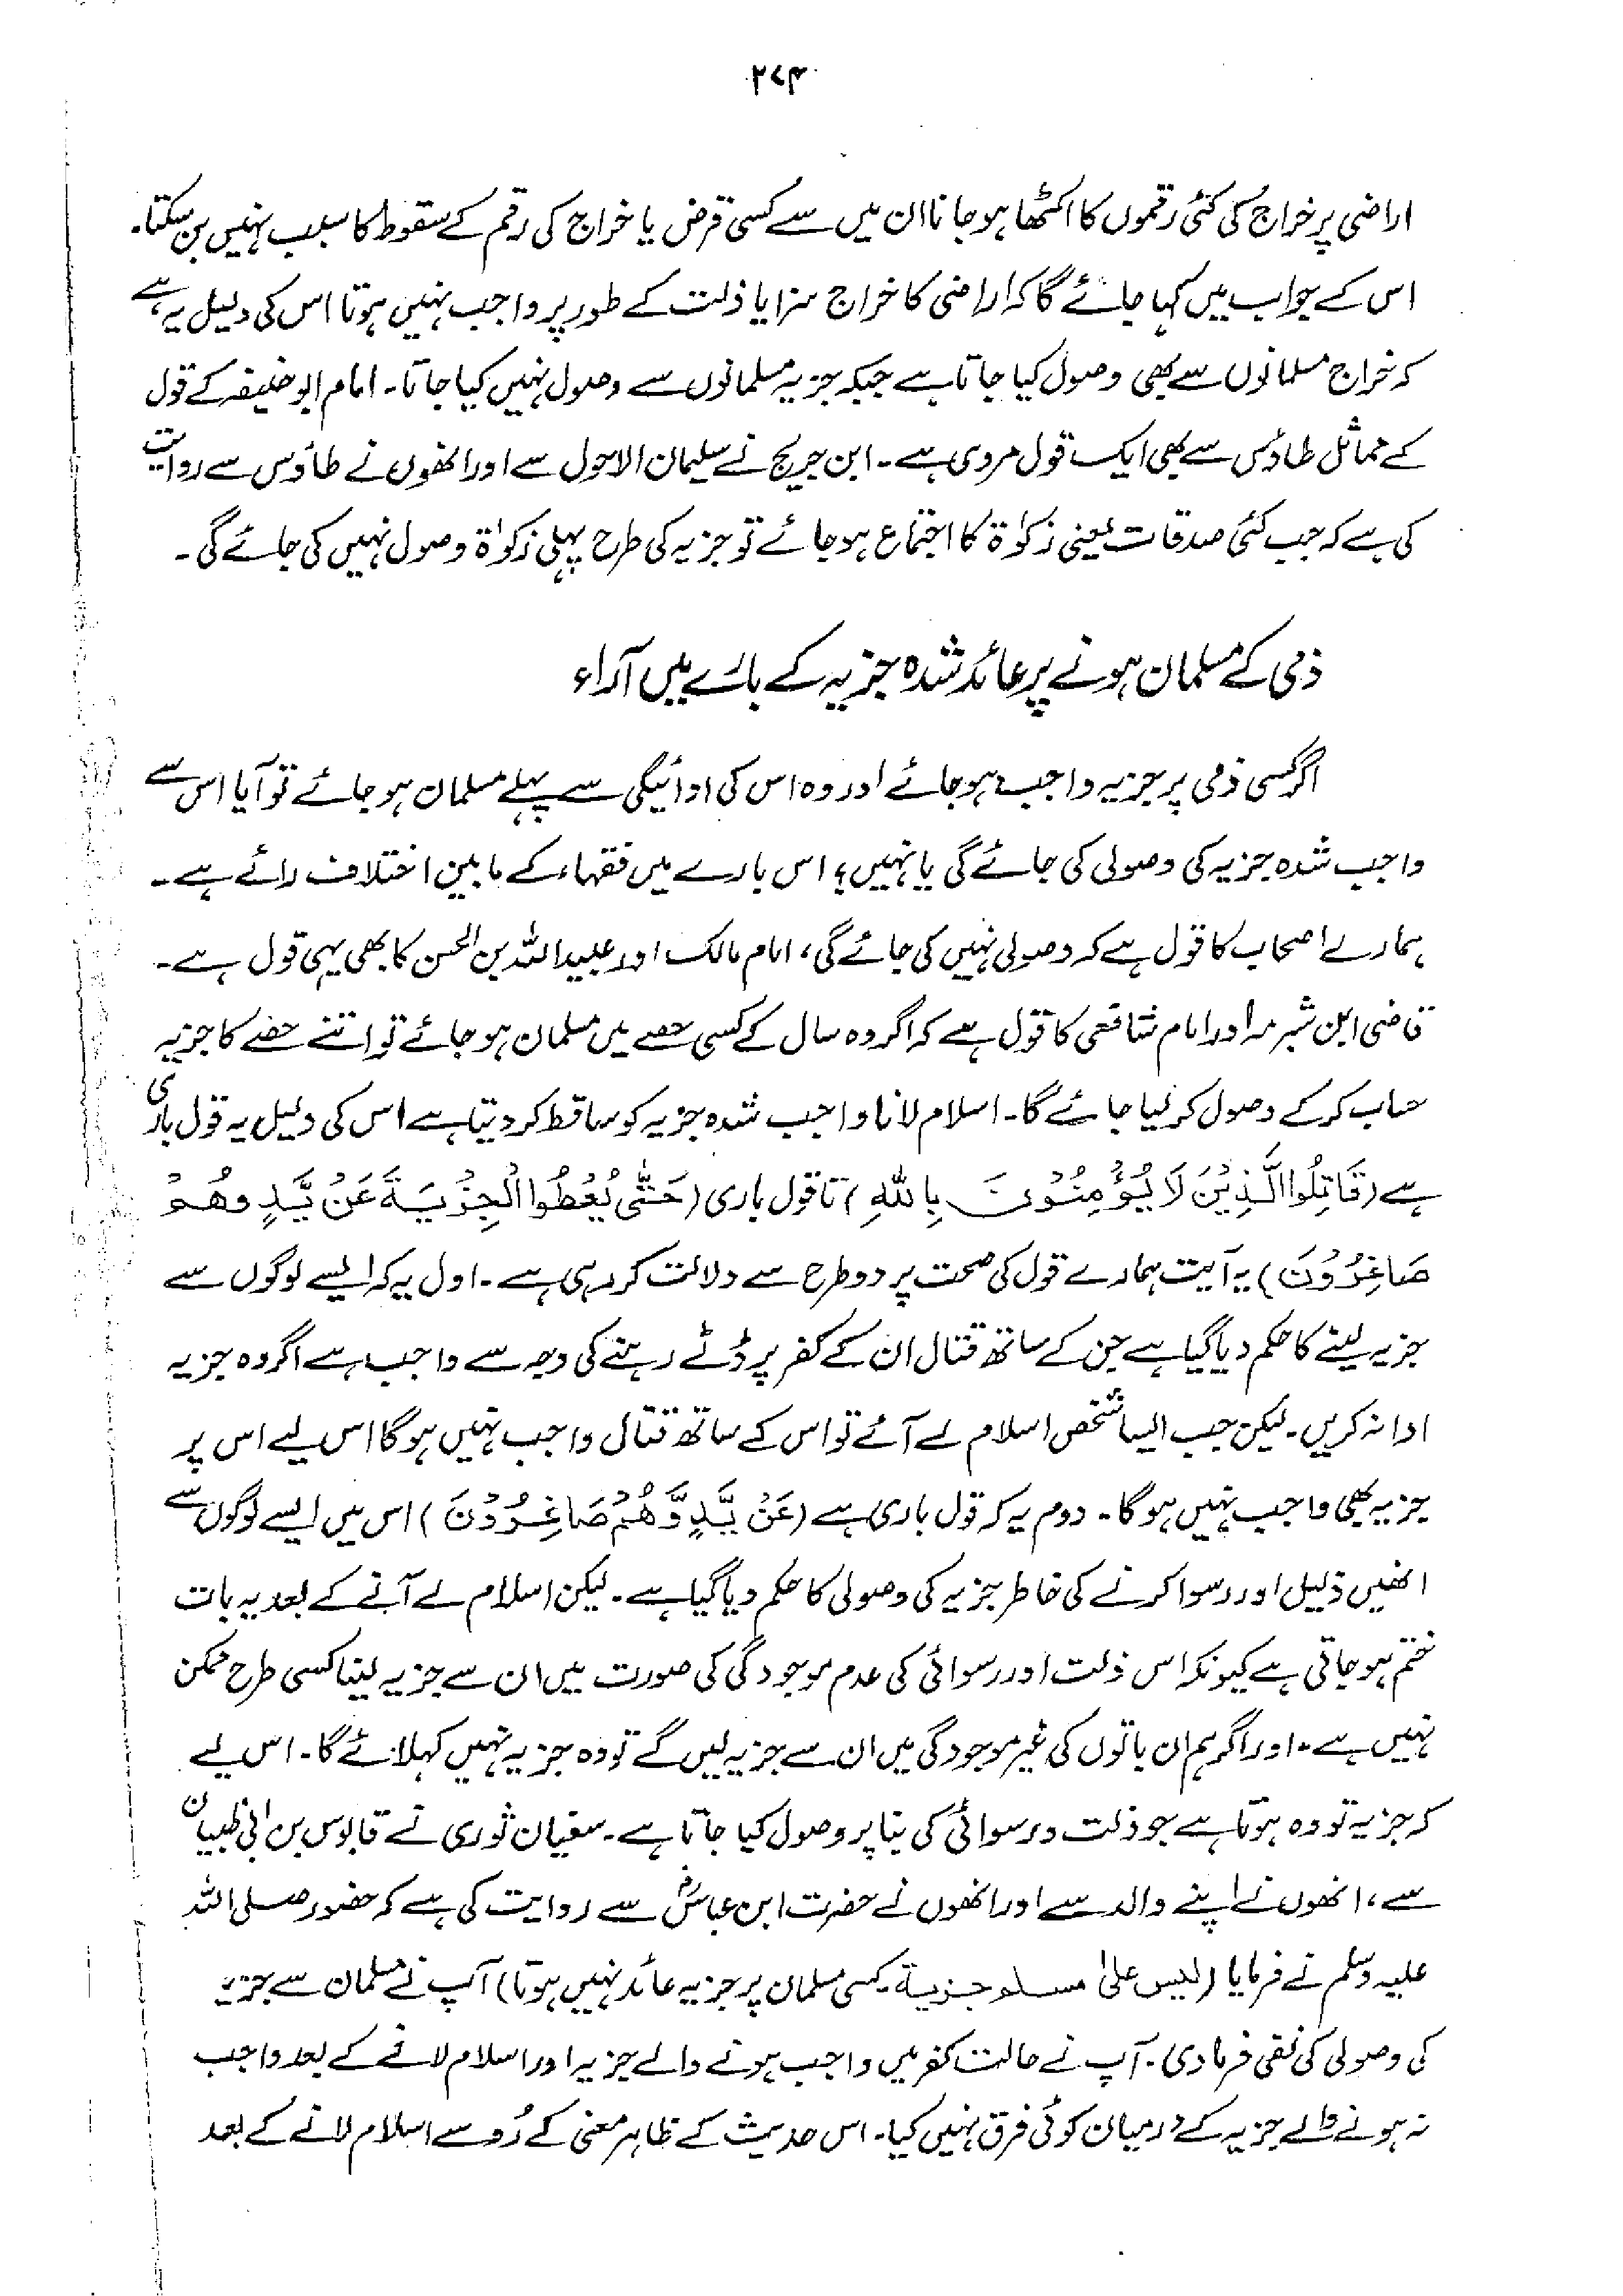 ۲۷۴
اراضی پر خراج کی کئی رقموں کا اکٹھا ہو جانا ان میں سے کسی قرض یا خراج کی رقم کے سقوط کا سبب نہیں بن سکتا۔
اس کے جواب میں کہا جائے گا کہ اراضی کا خراج سزا یا ذلت کے طور پر واجب نہیں ہوتا اس کی دلیل یہ ہے
کہ خراج مسلمانوں سے بھی وصول کیا جاتا ہے جبکہ جزیہ مسلمانوں سے وصول نہیں کیا جاتا۔ امام ابو حنیفہ کے قول
کے مماثل طاؤس سے بھی ایک قول مروی ہے۔ ابن جریج نے سلیمان الاحول سے اور انھوں نے طاؤس سے روایت
کی ہے کہ جب کئی صدقات یعنی زکوٰۃ کا اجتماع ہو جائے تو جزیہ کی طرح پہلی زکوٰۃ وصول نہیں کی جائے گی۔
ذمی کے مسلمان ہونے پر عائد شدہ جزیہ کے بارے میں آراء
اگر کسی ذمی پر جزیہ واجب ہو جائے اور وہ اس کی ادائیگی سے پہلے مسلمان ہو جائے تو آیا اس سے
واجب شدہ جزیہ کی وصولی کی جائے گی یا نہیں؟ اس بارے میں فقہاء کے مابین اختلاف رائے ہے۔
ہمارے اصحاب کا قول ہے کہ وصولی نہیں کی جائے گی، امام مالک اور عبیداللہ بن الحسن کا بھی یہی قول ہے۔
قاضی ابن شبرمہ اور امام شافعی کا قول ہے کہ اگر وہ سال کے کسی حصے میں مسلمان ہو جائے تو اتنے حصے کا جزیہ
حساب کر کے وصول کر لیا جائے گا۔ اسلام لانا واجب شدہ جزیہ کو ساقط کر دیتا ہے اس کی دلیل یہ قول باری
ہے (قَاتِلُوا الَّذِیْنَ لَا یُؤْمِنُوْنَ بِاللّٰهِ) تا قول باری (حَتّٰی یُعْطُوا الْجِزْیَةَ عَنْ یَّدٍ وهُمْ
صَاغِرُوْنَ) یہ آیت ہمارے قول کی صحت پر دو طرح سے دلالت کر رہی ہے۔ اول یہ کہ ایسے لوگوں سے
جزیہ لینے کا حکم دیا گیا ہے جن کے ساتھ قتال ان کے کفر پر ڈٹے رہنے کی وجہ سے واجب ہے اگر وہ جزیہ
ادا نہ کریں۔ لیکن جب ایسا شخص اسلام لے آئے تو اس کے ساتھ قتال واجب نہیں ہوگا اس لیے اس پر
جزیہ بھی واجب نہیں ہوگا۔ دوم یہ کہ قول باری ہے (عَنْ یَّدٍ وَّهُمْ صَاغِرُوْنَ) اس میں ایسے لوگوں سے
انھیں ذلیل اور رسوا کرنے کی خاطر جزیہ کی وصولی کا حکم دیا گیا ہے۔ لیکن اسلام لے آنے کے بعد یہ بات
ختم ہو جاتی ہے کیونکہ اس ذلت اور رسوائی کی عدم موجودگی کی صورت میں ان سے جزیہ لینا کسی طرح ممکن
نہیں ہے۔ اور اگر ہم ان باتوں کی غیر موجودگی میں ان سے جزیہ لیں گے تو وہ جزیہ نہیں کہلائے گا۔ اس لیے
کہ جزیہ تو وہ ہوتا ہے جو ذلت و رسوائی کی بنا پر وصول کیا جاتا ہے۔ سفیان ثوری نے قابوس بن ابی ظبیان
سے، انھوں نے اپنے والد سے اور انھوں نے حضرت ابن عباسؓ سے روایت کی ہے کہ حضور صلی اللہ
علیہ وسلم نے فرمایا (لیس علیٰ مسلم جزیة۔ کسی مسلمان پر جزیہ عائد نہیں ہوتا) آپ نے مسلمان سے جزیہ
کی وصولی کی نفی فرما دی۔ آپ نے حالت کفر میں واجب ہونے والے جزیہ اور اسلام لانے کے بعد واجب
نہ ہونے والے جزیہ کے درمیان کوئی فرق نہیں کیا۔ اس حدیث کے ظاہر معنی کے رُو سے اسلام لانے کے بعد